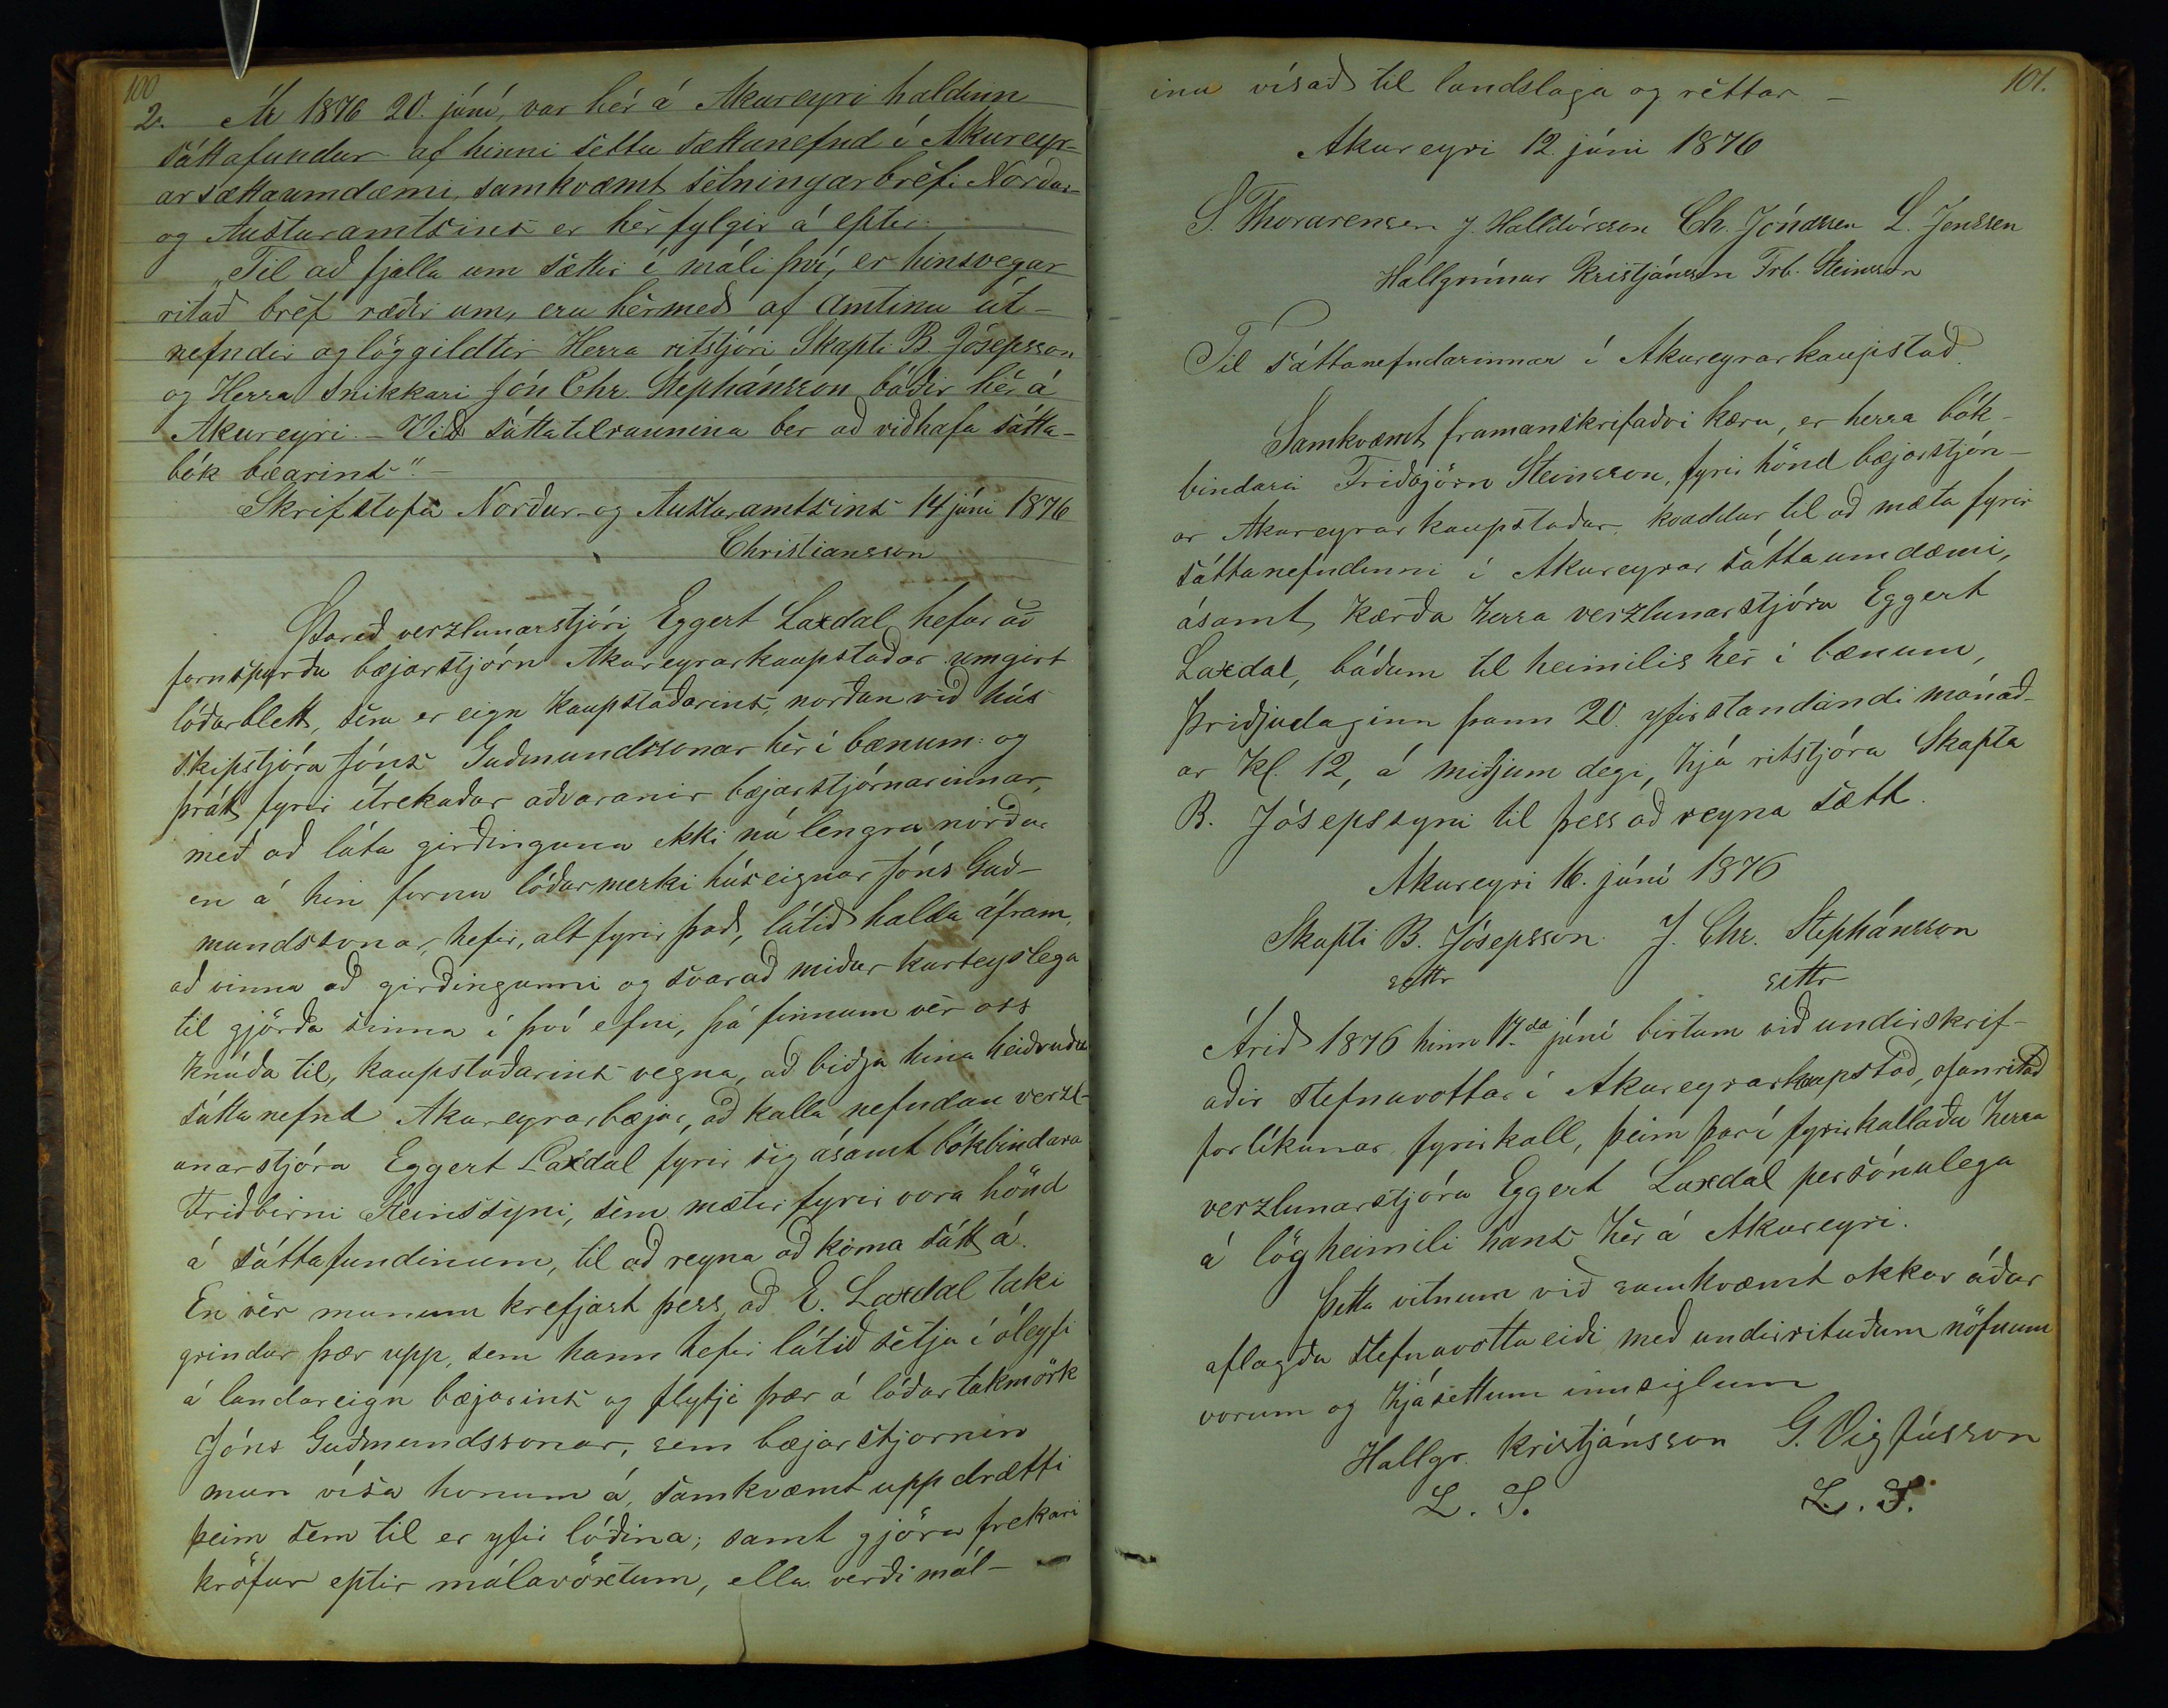 100
2. Ár 1876 20. júní, var hér á Akureyri haldinn
sáttafundur af hinni settu sáttanefnd í Akureyr-
ar sáttaumdæmi, samkvæmt setningarbréfi Norður-
og Austuramtsins er hér fylgir á eptir:
„Til að fjalla um sættir í máli því, er hinsvegar
ritað bréf ræðir um, eru hérmeð af amtinu út-
nefndir og löggildtir Herra ritstjóri Skapti B. Jósepsson
og Herra Snikkari Jón Chr. Stephánsson báðir hér á
Akureyri. – Við sáttatilraunina ber að viðhafa sátta-
bók bæarins“. –
Skrifstofa Norður- og Austuramtsins 14 júni 1876
Christiansson
Þareð verzlunarstjóri Eggert Laxdal hefur að
fornspurðu bæjarstjórn Akureyrarkaupstaðar umgirt
lóðarblett, sem er eign kaupstaðarins, norðan við hús
skipstjóra Jóns Guðmundssonar hér í bænum: og
þrátt fyrir ítrekaðar aðvaranir bæjarstjórnarinnar,
með að láta girðinguna ekki ná lengra norður
en á hin fornu lóðarmerki húseignar Jóns Guð-
mundssonar, hefir, alt fyrir það, látið halda áfram,
að vinna að girðingunni og svarað miður kurteyslega
til gjörða sinna í því efni, þá finnum vér oss
knúða til, kaupstaðarins vegna, að biðja hina heiðruðu
sáttanefnd Akureyrarbæjar, að kalla nefndan verzl-
unarstjóra Eggert Laxdal fyrir sig ásamt bókbindara
Friðbirni Steinssyni, sem mætir fyrir vora hönd
á sáttafundinum, til að reyna að koma sátt á.
En vér munum krefjast þess, að E. Laxdal taki
grindur þær upp, sem hann hefir látið setja í óleyfi
á landareign bæjarins og flytji þær á lóðartakmörk
Jóns Guðmundssonar, sem bæjarstjórnin
mun vísa honum á, samkvæmt uppdrætti
þeim sem til er yfir lóðina; samt gjöra frekari
kröfur eptir málavöxtum, ella verði mál-
101.
inu vísað til landslaga og réttar –
Akureyri 12 júni 1876
S. Thorarensen J. Halldórsson Ch. Jónassen L. Jenssen
Hallgrímur Kristjánsson Frb. Steinsson
Til sáttanefndarinnar í Akureyrarkaupstað.
Samkvæmt framanskrifaðri kæru, er herra bók-
bindari Friðbjörn Steinsson, fyrir hönd bæjarstjórn-
ar Akureyrarkaupstaðar, kvaddur til að mæta fyrir
sáttanefndinni í Akureyrar sáttaumdæmi,
ásamt kærða herra verzlunarstjóra Eggert
Laxdal, báðum til heimilis hér í bænum,
Þriðjudaginn þann 20. yfirstandandi mánað-
ar Kl. 12, á miðjum degi, hjá ritstjóra Skapta
B. Jósepssyni til þess að reyna sætt.
Akureyri 16. júní 1876
Skapti B. Jósepsson. J. Chr. Stephánsson
settr settr
Árið 1876 hinn 17.da júní birtum við undirskrif-
aðir stefnuvottar í Akureyrarkaupstað, ofanritað
forlíkunar fyrirkall, þeim þarí fyrirkallaða herra
verzlunarstjóra Eggert Laxdal persónulega
á lögheimili hans hér á Akureyri.
Þetta vitnum við samkvæmt okkar áður
aflagða stefnuvotta eiði með undirrituðum nöfnum
vorum og hjásettum innsiglum
Hallgr. Kristjánsson G. Vigfússon
L. S. L. S.